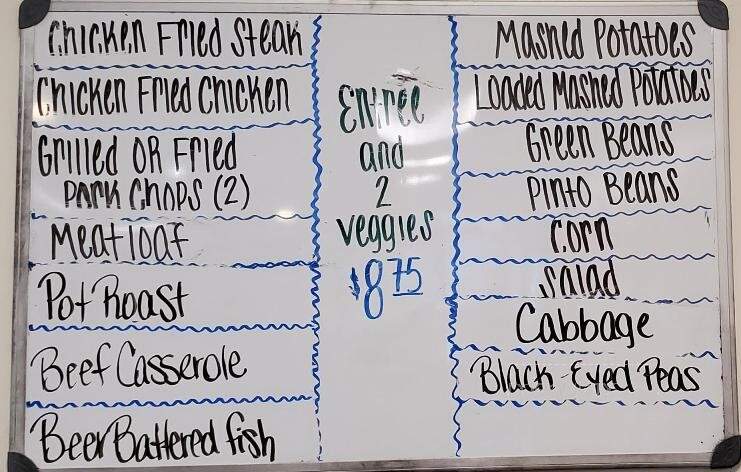 Chicken Fried Steak
Chicken Fried Chicken
Grilled OR Fried
Pork Chops (2)
Meatloaf
Pot Roast
Beef Casserole
Beer Battered fish
Entree
and
2
veggies
$8 75
Mashed Potatoes
Loaded Mashed Potatoes
Green Beans
Pinto Beans
Corn
Salad
Cabbage
Black-Eyed Peas